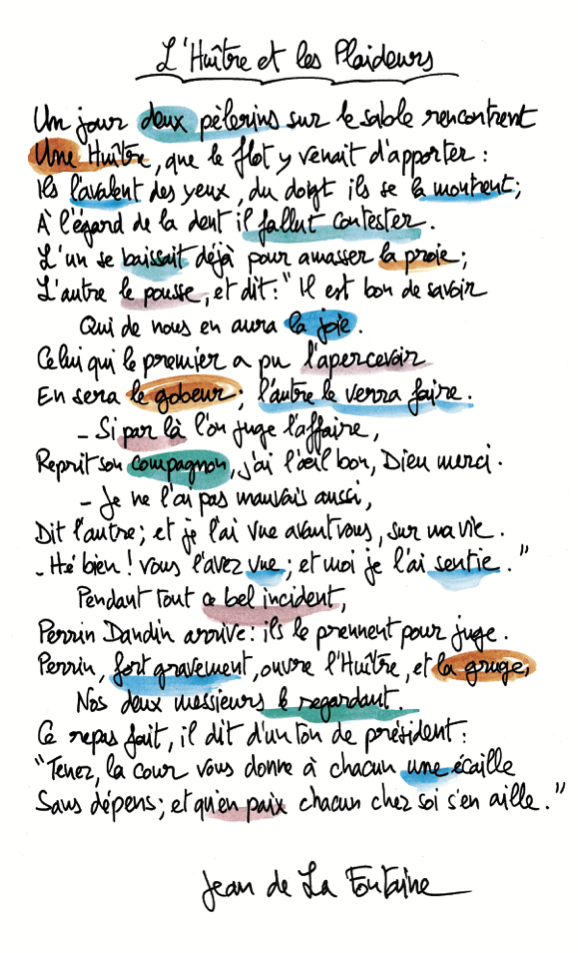 L'Huître et les Plaideurs
Un jour deux pèlerins sur le sable rencontrent
Une Huître, que le flot y venait d'apporter :
Ils l'avalent des yeux, du doigt ils se la montrent ;
À l'égard de la dent il fallut contester.
L'un se baissait déjà pour amasser la proie ;
L'autre le pousse, et dit : " Il est bon de savoir
Qui de nous en aura la joie.
Celui qui le premier a pu l'apercevoir
En sera le gobeur ; l'autre le verra faire.
- Si par là l'on juge l'affaire,
Reprit son compagnon, j'ai l'œil bon, Dieu merci.
- Je ne l'ai pas mauvais aussi,
Dit l'autre ; et je l'ai vue avant vous, sur ma vie.
- Hé bien ! vous l'avez vue ; et moi je l'ai sentie. "
Pendant tout ce bel incident,
Perrin Dandin arrive : ils le prennent pour juge.
Perrin, fort gravement, ouvre l'Huître, et la gruge,
Nos deux messieurs le regardant.
Ce repas fait, il dit d'un ton de président :
"Tenez, la cour vous donne à chacun une écaille
Sans dépens ; et qu'en paix chacun chez soi s'en aille. "
Jean de La Fontaine